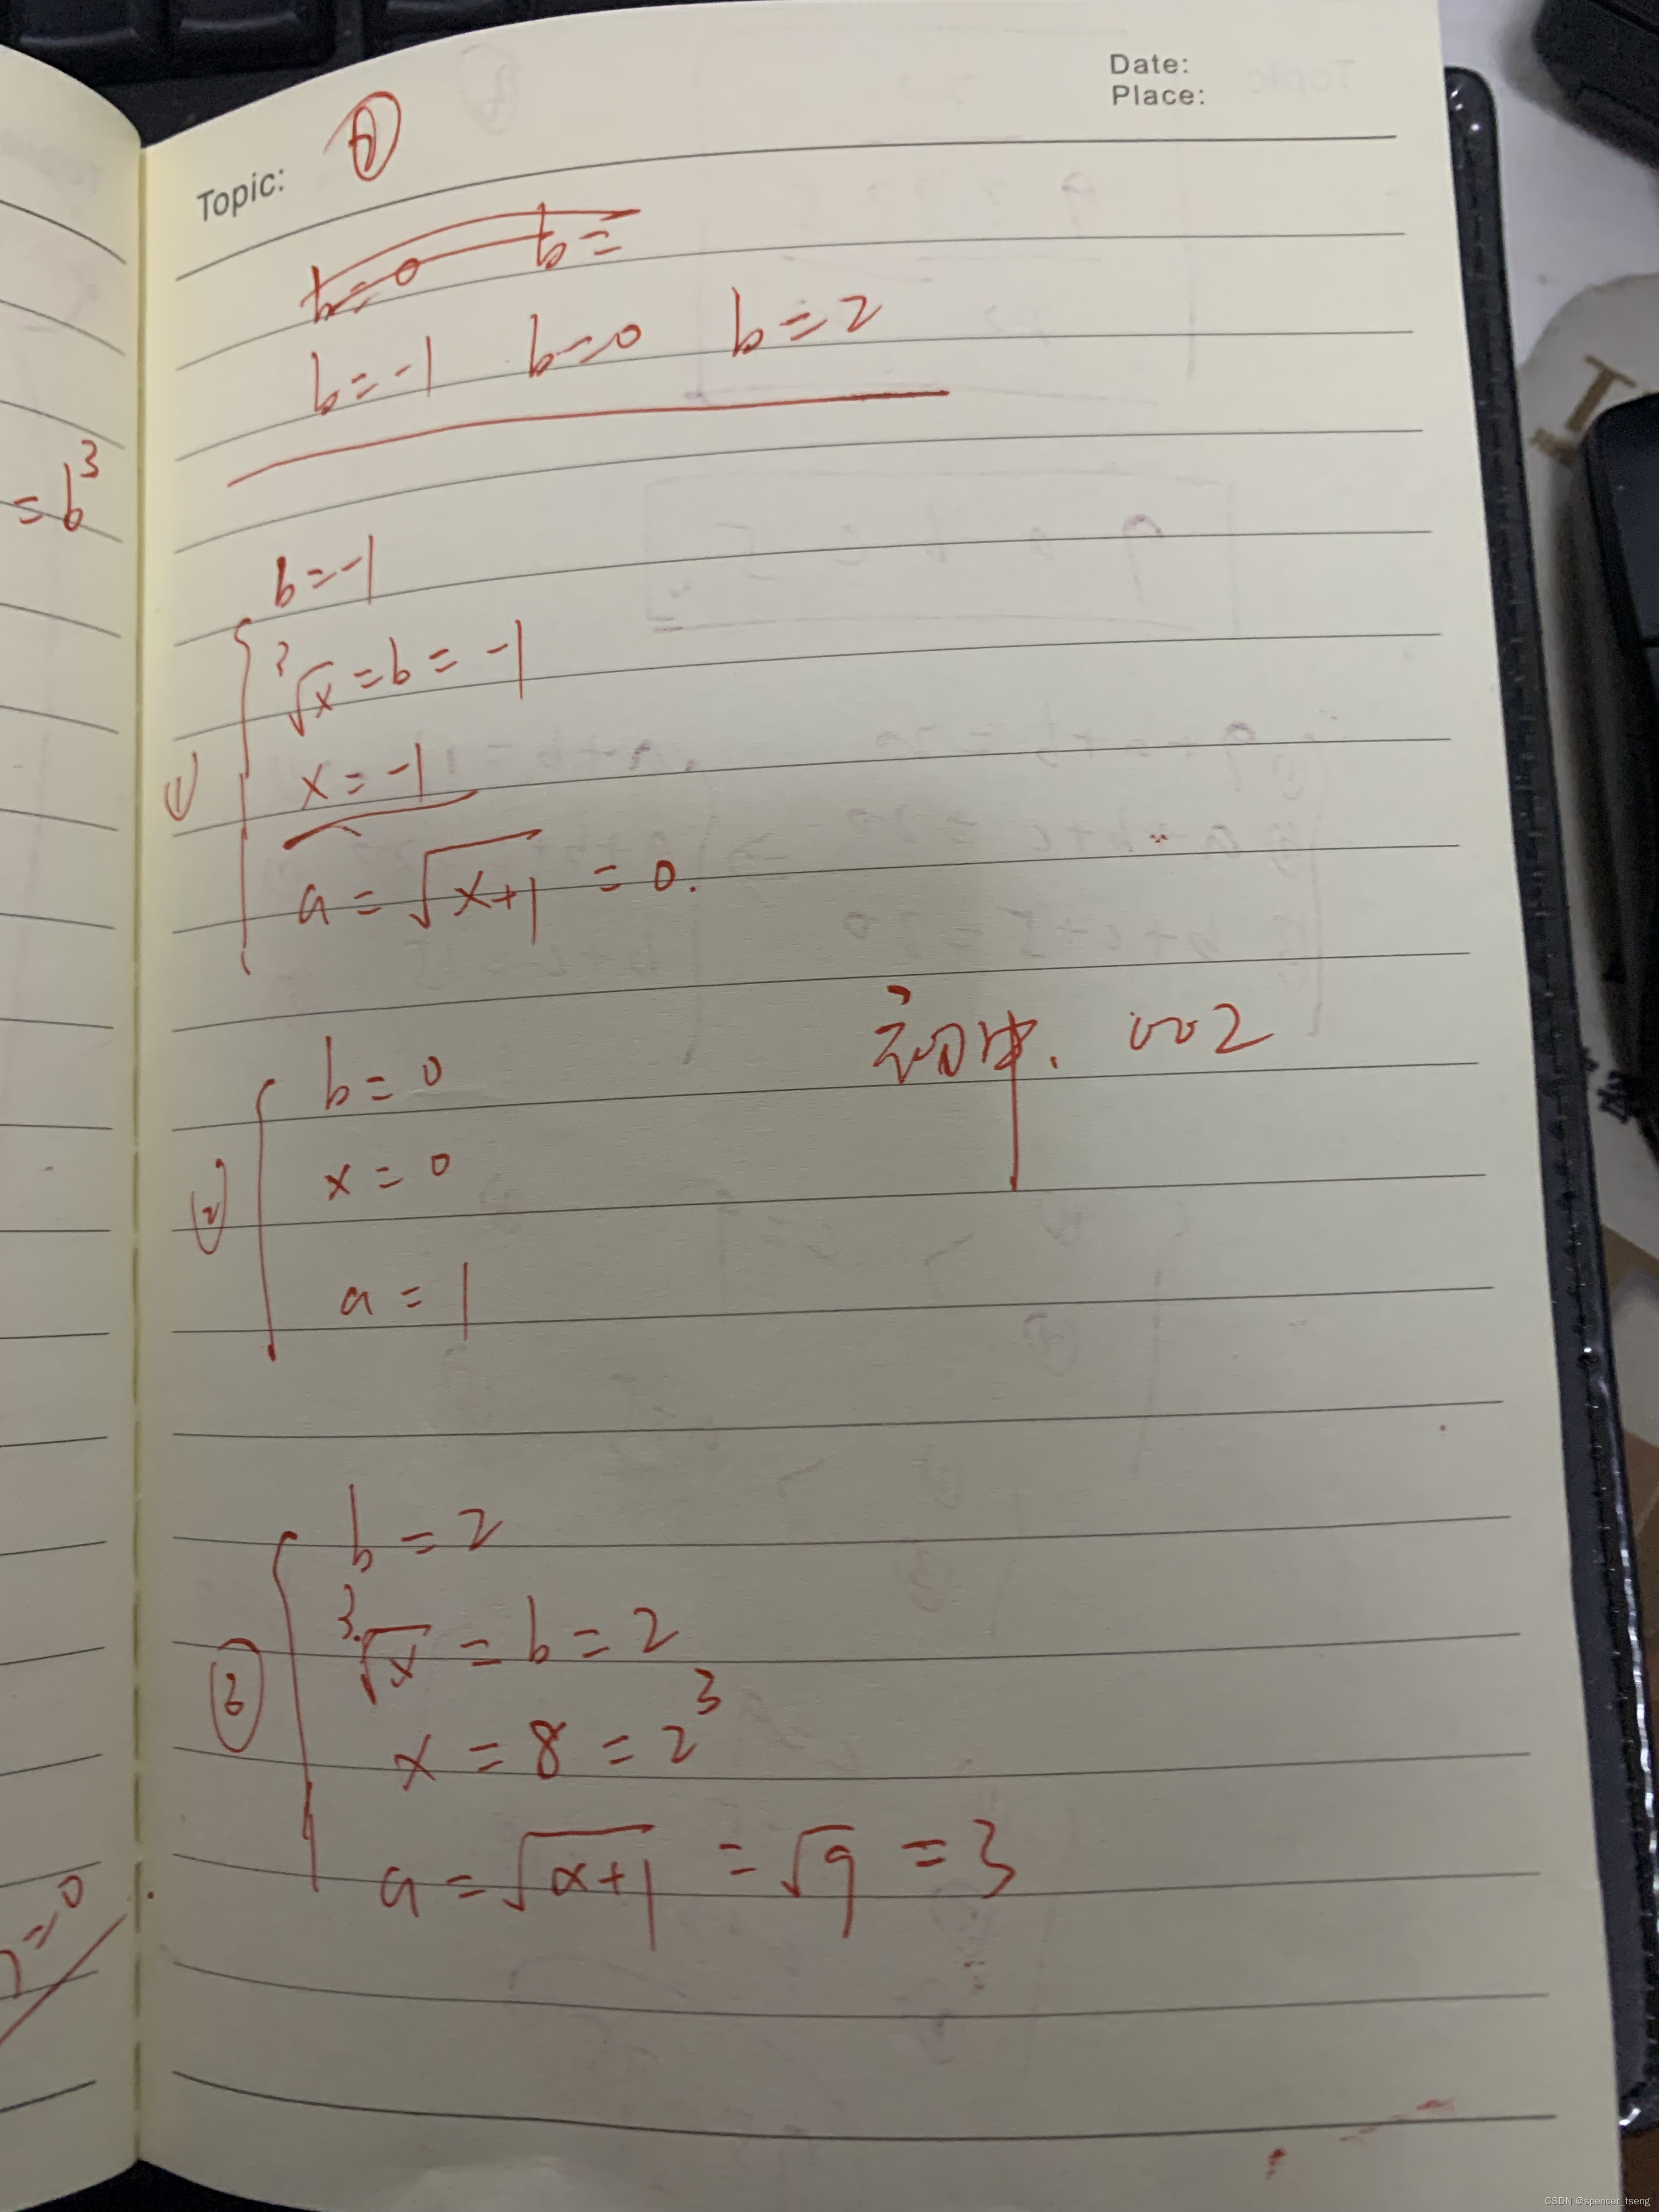 Date:
Place:
Topic:
b=0 b=
b=-1 b=0 b=2
=b³
b=-1
³√x=b=-1
① x=-1
a=√(x+1)=0.
初中. 002
b=0
② x=0
a=1
b=2
³√x=b=2
③ x=8=2³
a=√(x+1)=√9=3
=0
CSDN @spencer_tseng